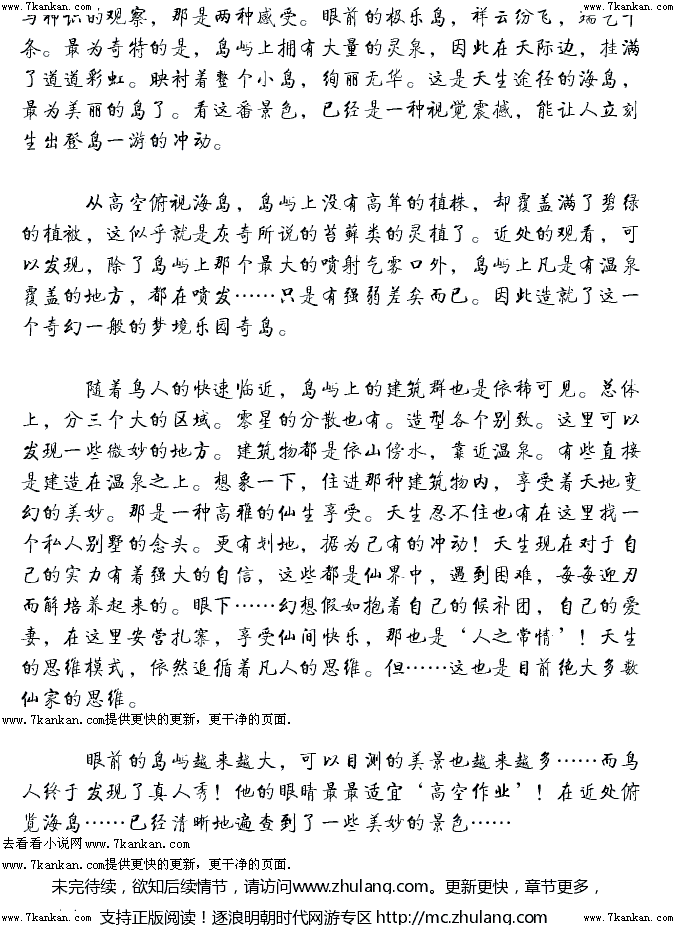 www.7kankan.com www.7kankan.com
与神识的观察，那是两种感受。眼前的极乐岛，祥云纷飞，瑞气千
条。最为奇特的是，岛屿上拥有大量的灵泉，因此在天际边，挂满
了道道彩虹。映衬着整个小岛，绚丽无华。这是天生途径的海岛，
最为美丽的岛了。看这番景色，已经是一种视觉震撼，能让人立刻
生出登岛一游的冲动。
从高空俯视海岛，岛屿上没有高耸的植株，却覆盖满了碧绿
的植被，这似乎就是灰奇所说的苔藓类的灵植了。近处的观看，可
以发现，除了岛屿上那个最大的喷射气雾口外，岛屿上凡是有温泉
覆盖的地方，都在喷发……只是有强弱差矣而已。因此造就了这一
个奇幻一般的梦境乐园奇岛。
随着鸟人的快速临近，岛屿上的建筑群也是依稀可见。总体
上，分三个大的区域。零星的分散也有。造型各个别致。这里可以
发现一些微妙的地方。建筑物都是依山傍水，靠近温泉。有些直接
是建造在温泉之上。想象一下，住进那种建筑物内，享受着天地变
幻的美妙。那是一种高雅的仙生享受。天生忍不住也有在这里找一
个私人别墅的念头。更有划地，据为己有的冲动！天生现在对于自
己的实力有着强大的自信，这些都是仙界中，遇到困难，每每迎刃
而解培养起来的。眼下……幻想假如抱着自己的候补团，自己的爱
妻，在这里安营扎寨，享受仙间快乐，那也是‘人之常情’！天生
的思维模式，依然追循着凡人的思维。但……这也是目前绝大多数
仙家的思维。
www.7kankan.com提供更快的更新，更干净的页面.
眼前的岛屿越来越大，可以目测的美景也越来越多……而鸟
人终于发现了真人秀！他的眼睛最最适宜‘高空作业’！在近处俯
览海岛……已经清晰地遍查到了一些美妙的景色……
去看看小说网www.7kankan.com
www.7kankan.com提供更快的更新，更干净的页面.
未完待续，欲知后续情节，请访问www.zhulang.com。更新更快，章节更多，
www.7kankan.com 支持正版阅读！逐浪明朝时代网游专区 http://mc.zhulang.com www.7kankan.com